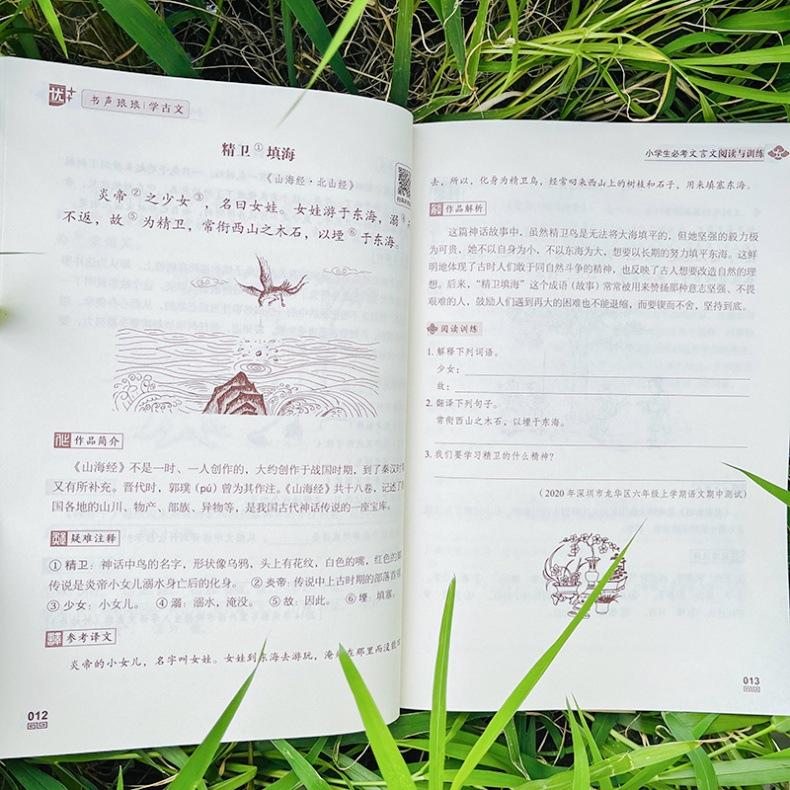 优++
书声琅琅|学古文
精卫①填海
《山海经·北山经》
炎帝②之少女③,名曰女娃。女娃游于东海,溺④而
不返,故⑤为精卫,常衔西山之木石,以堙⑥于东海。
作品简介
《山海经》不是一时、一人创作的,大约创作于战国时期,到了秦汉时
又有所补充。晋代时,郭璞(pú)曾为其作注。《山海经》共十八卷,记述了
国各地的山川、物产、部族、异物等,是我国古代神话传说的一座宝库。
疑难注释
①精卫:神话中鸟的名字,形状像乌鸦,头上有花纹,白色的嘴,红色的脚
传说是炎帝小女儿溺水身亡后的化身。 ②炎帝:传说中上古时期的部落首领
③少女:小女儿。 ④溺:溺水,淹没。 ⑤故:因此。 ⑥堙:填塞。
参考译文
炎帝的小女儿,名字叫女娃。女娃到东海去游玩,淹 在那里而没能
012
小学生必考文言文阅读与训练
去,所以,化身为精卫鸟,经常叼来西山上的树枝和石子,用来填塞东海。
作品解析
这篇神话故事中,虽然精卫鸟是无法将大海填平的,但她坚强的毅力极
为可贵,她不以自身为小,不以东海为大,想要以长期的努力填平东海。这鲜
明地体现了古时人们敢于同自然斗争的精神,也反映了古人想要改造自然的理
想。后来,“精卫填海”这个成语(故事)常常被用来赞扬那种意志坚强、不畏
艰难的人,鼓励人们遇到再大的困难也不能退缩,而要锲而不舍,坚持到底。
阅读训练
1.解释下列词语。
少女:
故:
2.翻译下列句子。
常衔西山之木石,以堙于东海。
3.我们要学习精卫的什么精神?
(2020年深圳市龙华区六年级上学期语文期中测试)
013